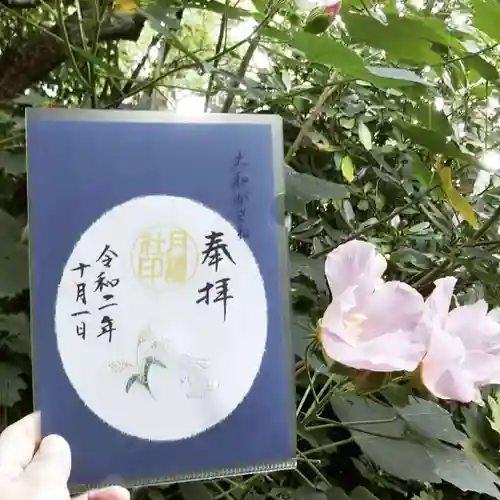 大和がさね
奉拝
月讀
社印
令和二年
十月一日